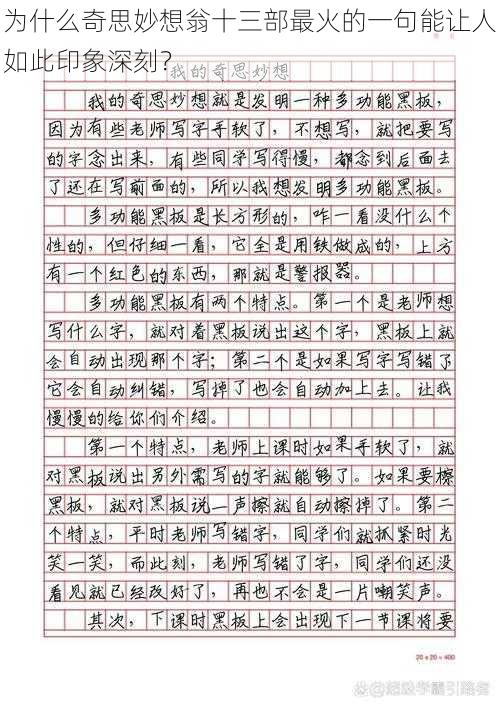 为什么奇思妙想翁十三部最火的一句能让人
如此印象深刻？
我的奇思妙想
我的奇思妙想就是发明一种多功能黑板，
因为有些老师写字手软了，不想写，就把要写
的字念出来，有些同学写得慢，都念到后面去
了还在写前面的，所以我想发明多功能黑板。
多功能黑板是长方形的，咋一看没什么个
性的，但仔细一看，它全是用铁做成的，上方
有一个红色的东西，那就是警报器。
多功能黑板有两个特点。第一个是老师想
写什么字，就对着黑板说出这个字，黑板上就
会自动出现那个字；第二个是如果写字写错了
它会自动纠错，写掉了也会自动加上去。让我
慢慢的给你们介绍。
第一个特点，老师上课时如果手软了，就
对黑板说出另外需写的字就能够了。如果要擦
黑板，就对黑板说一声擦就自动擦掉了。第二
个特点，平时老师写错字，同学们就抓紧时光
笑一笑，而此刻，老师写错了字，同学们还没
看见就已经改好了，再也不会是一片嘲笑声。
其次，下课时黑板上会出现下一节课将要
20 x 20 = 400
@超级学霸引路者